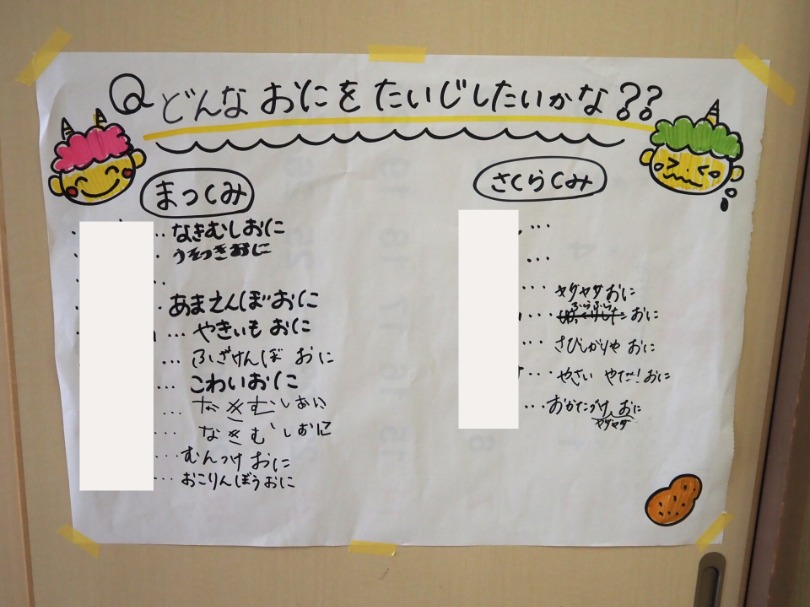 Q どんなおにをたいじしたいかな??
まつくみ
… なきむしおに
… うそつきおに
… あまえんぼおに
… やきいもおに
… ふざけんぼ おに
… こわいおに
… なきむしおに
… なきむしおに
… むんつけ おに
… おこりんぼうおに
さくらぐみ
…
…
… ヤダヤダおに
ふらふら
… おに
… さびしがりや おに
… やさい やだ!おに
… おかたづけ おに
ヤダヤダ